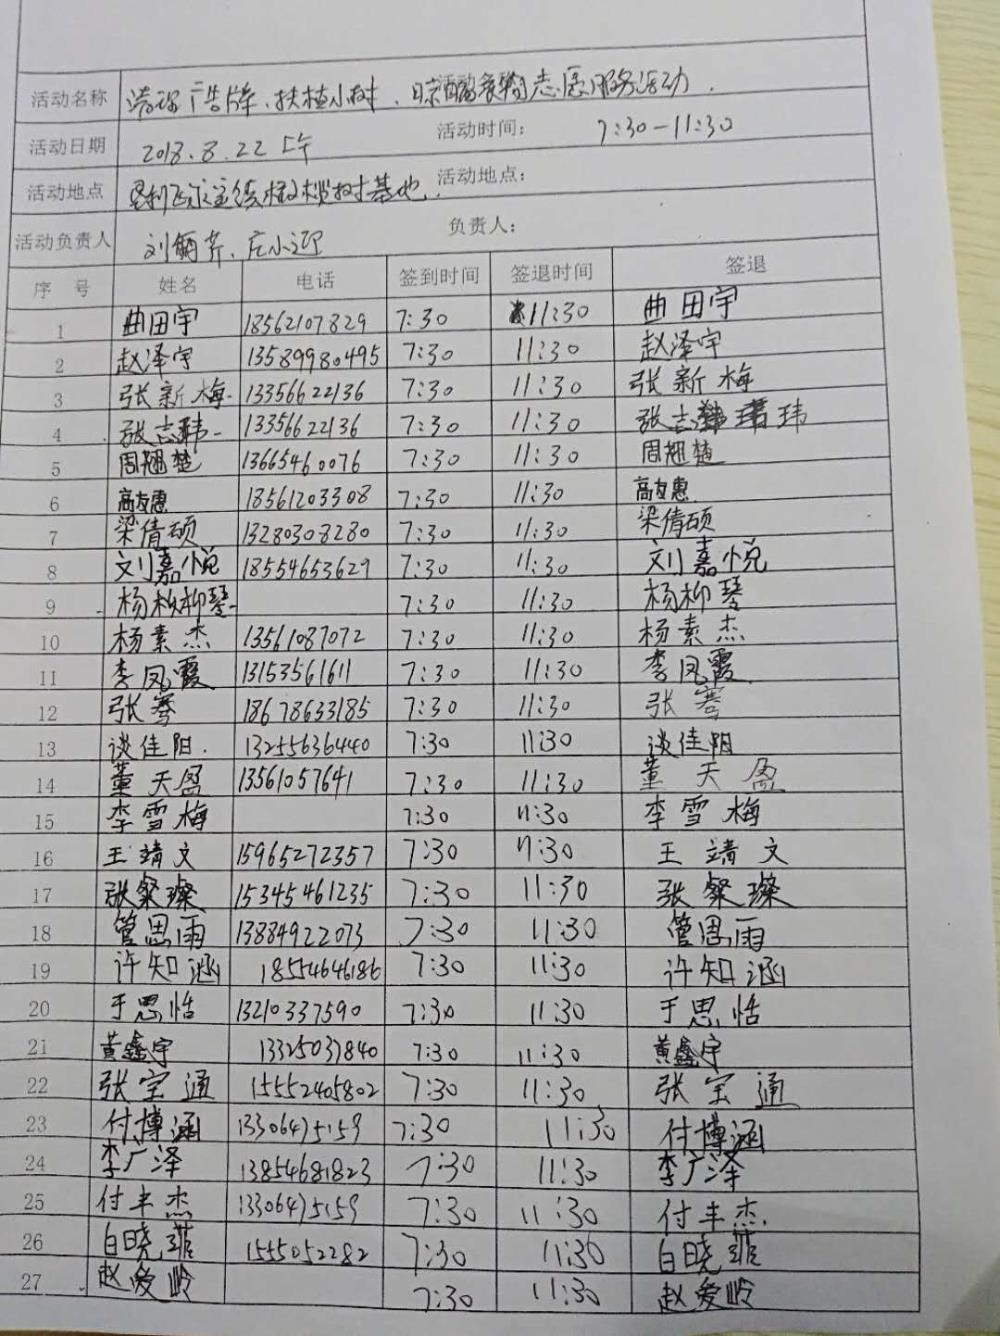 活动名称 清理广告牌、扶植小树、志愿服务活动.
活动日期 2018.8.22 上午 活动时间: 7:30-11:30
活动地点 基地. 活动地点:
活动负责人 刘 芹、庄小 负责人:
序 号 姓名 电话 签到时间 签退时间 签退
1 曲田宇 18562107829 7:30 11:30 曲田宇
2 赵泽宇 13589980495 7:30 11:30 赵泽宇
3 张新梅 13356622136 7:30 11:30 张新梅
4 张志玮 13356622136 7:30 11:30 张志玮
5 周翘楚 13665460076 7:30 11:30 周翘楚
6 高友惠 18561203308 7:30 11:30 高友惠
7 梁倩硕 13280308280 7:30 11:30 梁倩硕
8 刘嘉悦 18554653629 7:30 11:30 刘嘉悦
9 杨柳琴 7:30 11:30 杨柳琴
10 杨素杰 13561087072 7:30 11:30 杨素杰
11 李凤霞 13153561611 7:30 11:30 李凤霞
12 张骞 18678633185 7:30 11:30 张骞
13 谈佳阳. 13255636440 7:30 11:30 谈佳阳
14 董天盈 13561057641 7:30 11:30 董天盈
15 李雪梅 7:30 11:30 李雪梅
16 王靖文 15965272357 7:30 11:30 王靖文
17 张粲璨 15345461235 7:30 11:30 张粲璨
18 管思雨 13884922073 7:30 11:30 管思雨
19 许知涵 18554646186 7:30 11:30 许知涵
20 于思恬 13210337590 7:30 11:30 于思恬
21 黄鑫宇 13325037840 7:30 11:30 黄鑫宇
22 张宝通 15552405802 7:30 11:30 张宝通
23 付博涵 13306475159 7:30 11:30 付博涵
24 李广泽 13854681823 7:30 11:30 李广泽
25 付丰杰 13306475159 7:30 11:30 付丰杰
26 白晓菲 1555052282 7:30 11:30 白晓菲
27 赵爱岭 7:30 11:30 赵爱岭